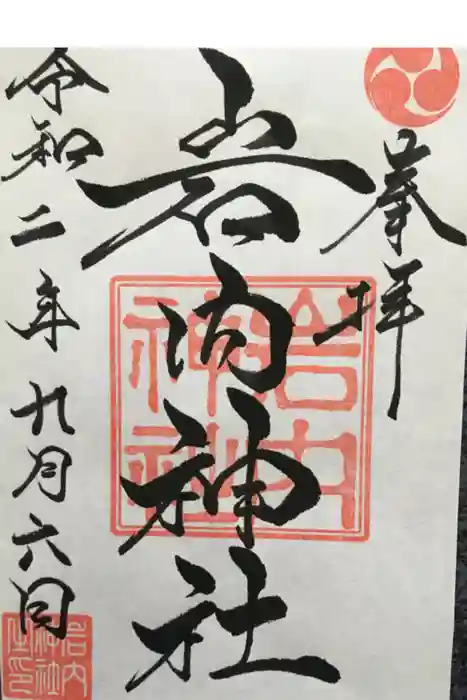 奉拝
岩内神社
令和二年九月六日
岩内
神社
岩内
神社
之印